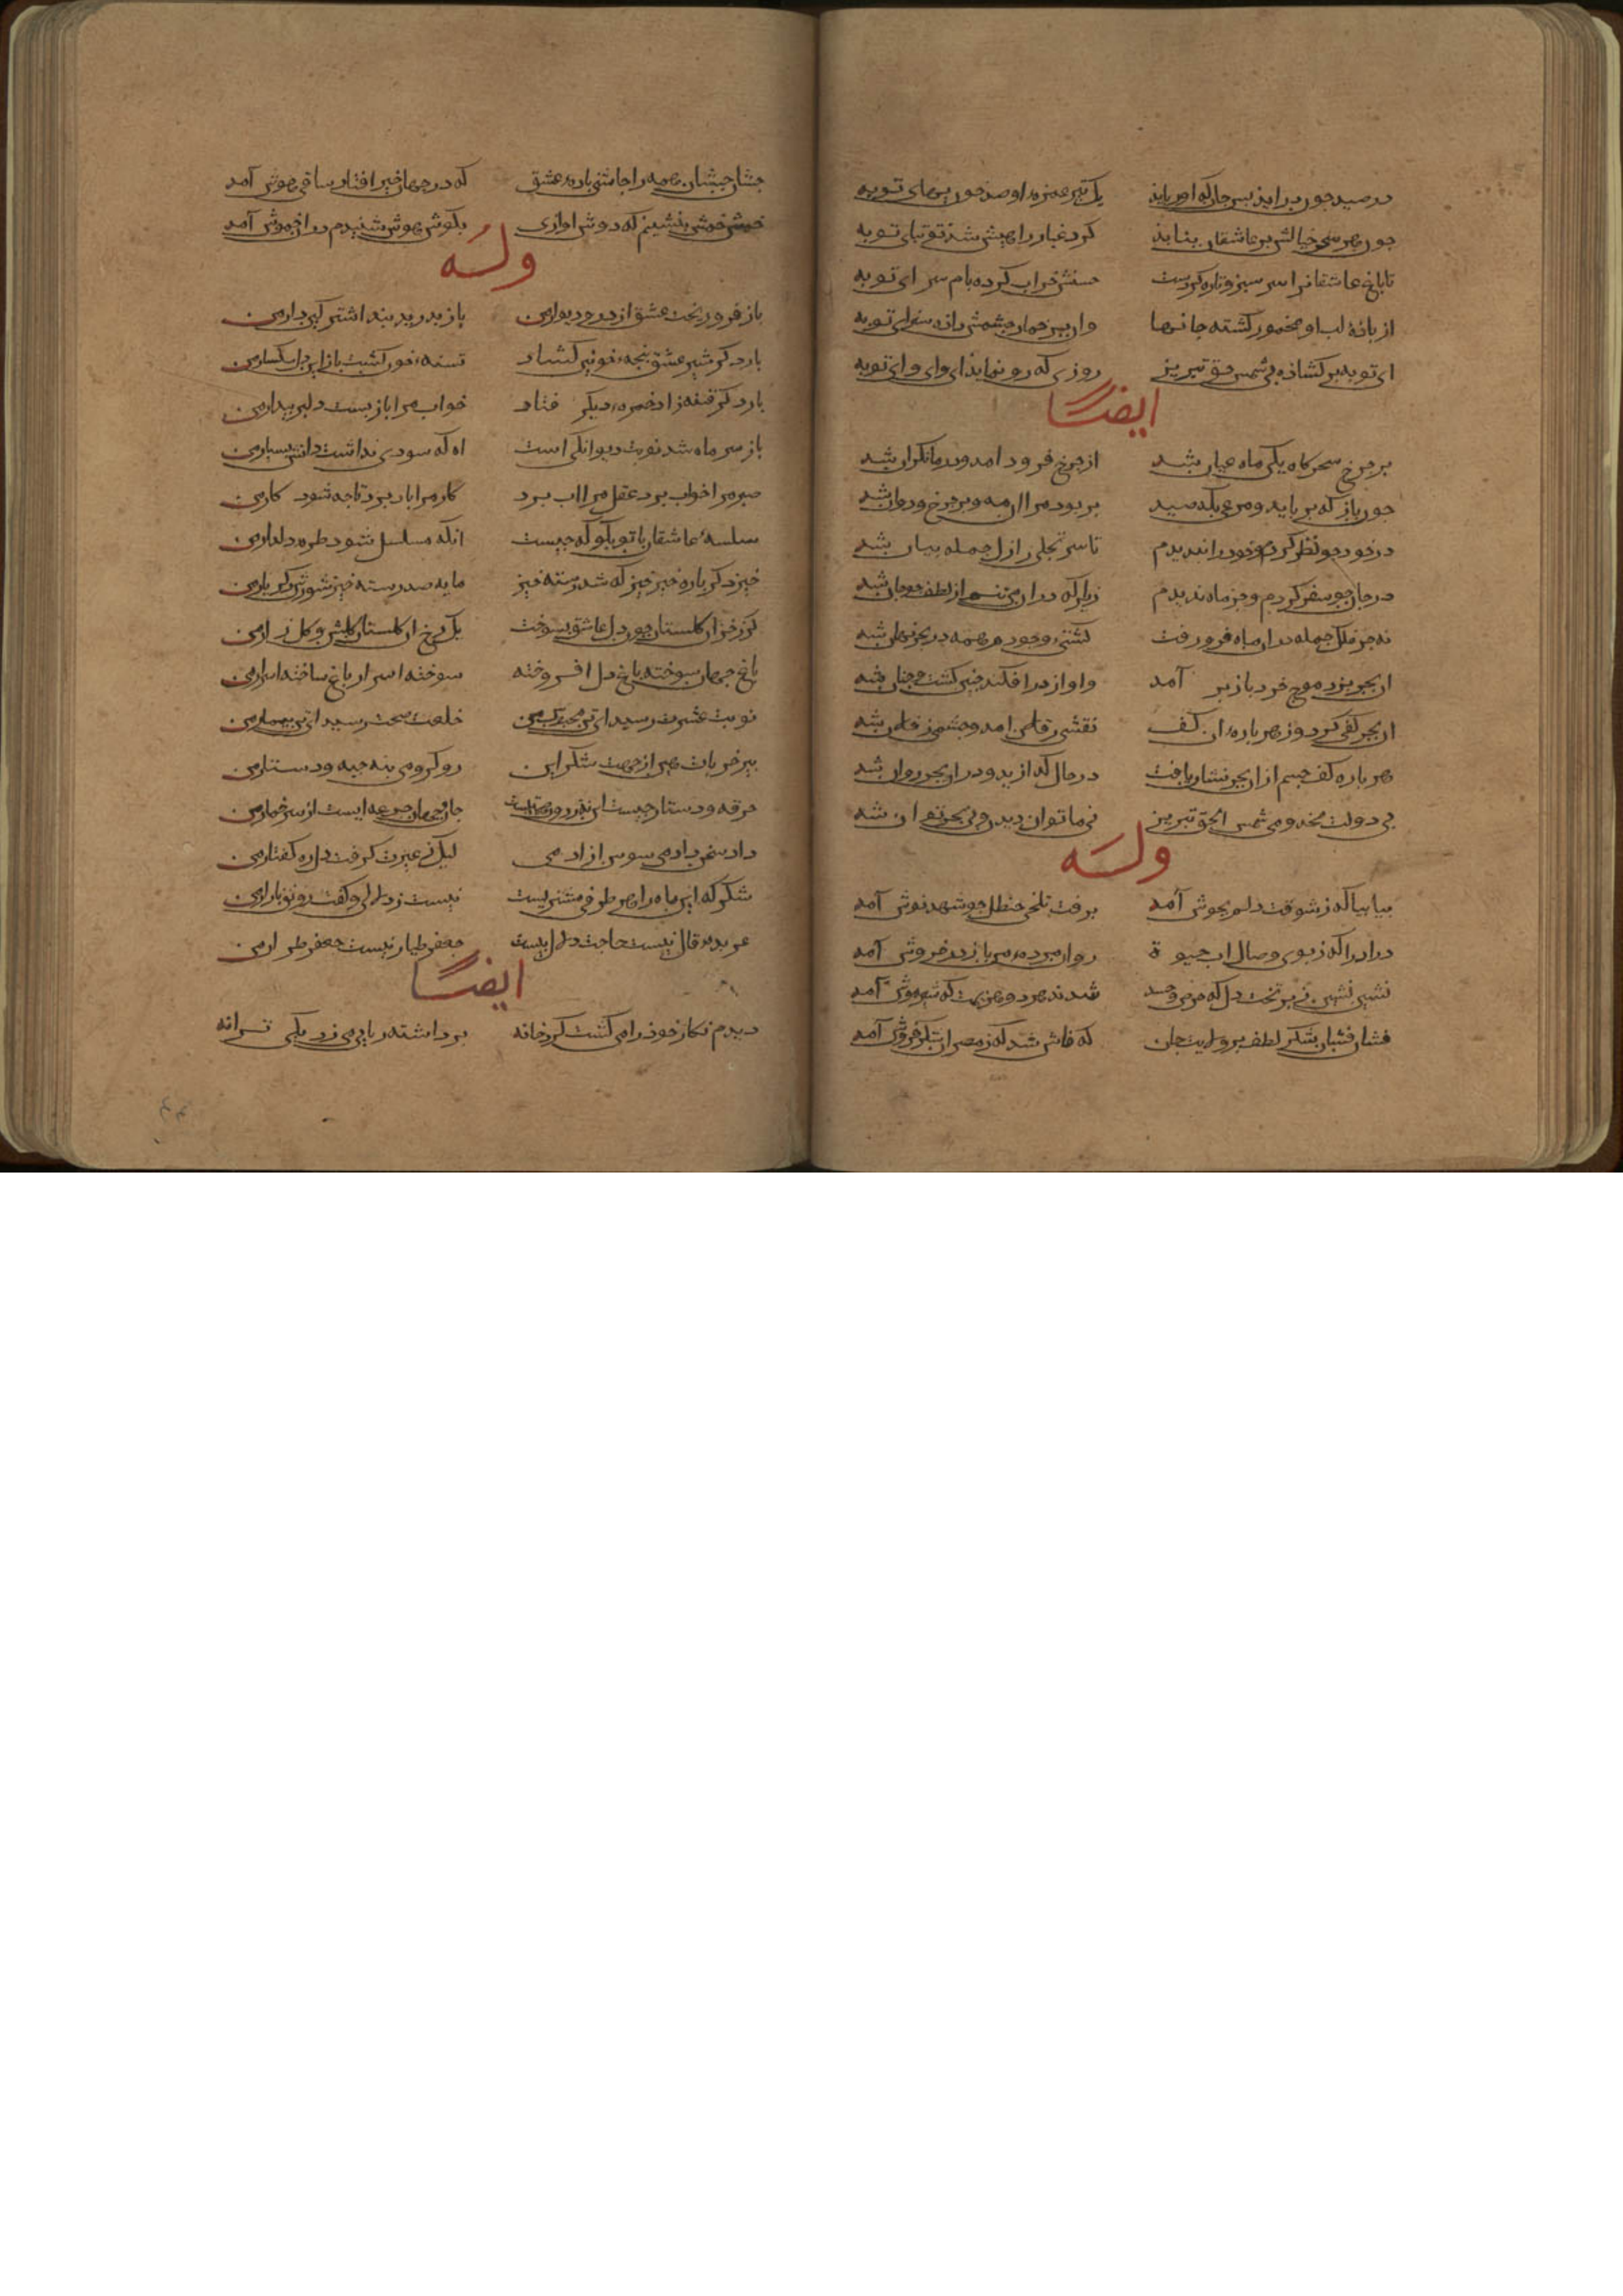 در صید چون درآید بس جان که او رباید یک تیر غمزه او صد خون بهای توبه
چون هر سحر خیالش بر عاشقان بتابد گرد غبار راهش شد توتیای توبه
تا باغ عاشقانرا سرسبز و تازه کردست حسنش خراب کرده بام سرای توبه
از باده لب او مخمور کشته جانها وان پر خمار چشمش داده سزای توبه
ای توبه بر کشاده بی شمس حق تبریز روزی که رو نماید ای وای وای توبه
ایضا
بر چرخ سحرکاه یکی ماه عیان شد از چرخ فرود امد و در ما نکران شد
چون باز که برباید مرغی بکه صید بربود مرا ان مه و بر چرخ دوان شد
در خود چو نظر کردم و خود را بندیدم تا سر تجلی ازل جمله بیان شد
در جان چو سفر کردم و جز ماه ندیدم زیرا که در ان مه تنم از لطف چو جان شد
نه چرخ فلک جمله در ان ماه فرو رفت کشتی وجودم همه در بحر نهان شد
ان بحر بزد موج خرد باز بر آمد و اواز در افکند چنین کشت و چنان شد
ان بحر کفی کرد و ز هر پاره ان کف نقشی ز فلان امد و جسمی ز فلان شد
هر پاره کف جسم از ان بحر نشان یافت در حال کدازید و در ان بحر روان شد
بی دولت مخدومی شمس الحق تبریز نی ماه توان دیدن و نی بحر توان شد
وله
بیا بیا که ز شوقت دلم بجوش آمد برفت تلخی حنظل چو شهد نوش آمد
درا درا که ز بوی وصال اب حیوة روان مرده من باز در خروش آمد
نشین نشین بر تخت دل که شدند هر دو هزیمت که آمد
فشان فشان شکر لطف بر ولایت جان که فاش شد که ز مصر ان شکر فروش آمد
چشان چشان همه را چاشنی باده عشق که در جهان خبر افتاد ساقی هوش آمد
خمش خمش بنشینم که دوش اوازی بکوش هوش شنیدم در ان خموش آمد
وله
باز فرو ریخت عشق از در و دیوار من باز بدرید بند اشتر کین دار من
بار دکر شیر عشق پنجه خونین کشاد تشنه خون کشت باز این دل سکسار من
بار دکر فتنه زاد جمره دیکر فتاد خواب مرا باز بست دلبر بیدار من
باز سر ماه شد نوبت دیوانکی است اه که سودی نداشت دانش بسیار من
صبر مرا خواب برد عقل مرا اب برد کار مرا یار برد تا چه شود کار من
سلسله عاشقان با تو بکو که چیست انکه مسلسل شود طره دلدار من
خیز دکر باره خیز خیز که شد رسته خیز مایه صد رسته خیز شور دکر بار من
کر ز خزان کلستان چون دل عاشق بسوخت یک رخ ان کلستان کلشن و کلزار من
باغ جهان سوخته باغ دل افروخته سوخته اسرار باغ ساخته اسرار من
نوبت عشرت رسید ای تن محبوس من خلعت صحت رسید ای تن بیمار من
پیر خرابات هین از جهت شکر این رو کرو می بنه جبه و دستار من
خرقه و دستار چیست این نه ز دون همتیست جان جهان جرعه ایست از سر خمار من
داد سخن دادمی سوسن ازادمی لیک ز غیرت کرفت دل ره کفتار من
شکر که این ماه را هر طرفی مشتریست نیست ز دلال کفت رونق بازار من
عربده قال نیست حاجت دلال نیست جعفر طرار نیست جعفر طیار من
ایضا
دیدم نکار خود را می کشت کرد خانه برداشته ربابی می زد یکی ترانه